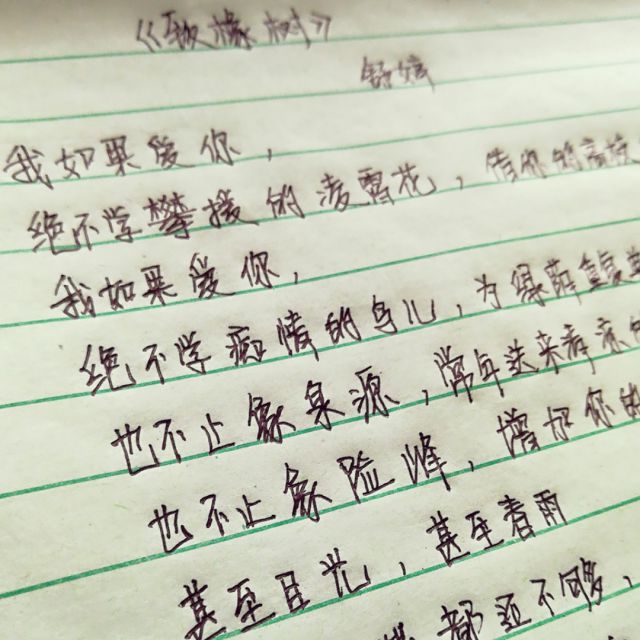 《致橡树》
舒婷
我如果爱你，
绝不学攀援的凌霄花，借你的高枝
我如果爱你，
绝不学痴情的鸟儿，为绿荫重复
也不止象泉源，常年送来清凉的
也不止象险峰，增加你的
甚至日光，甚至春雨
都还不够，